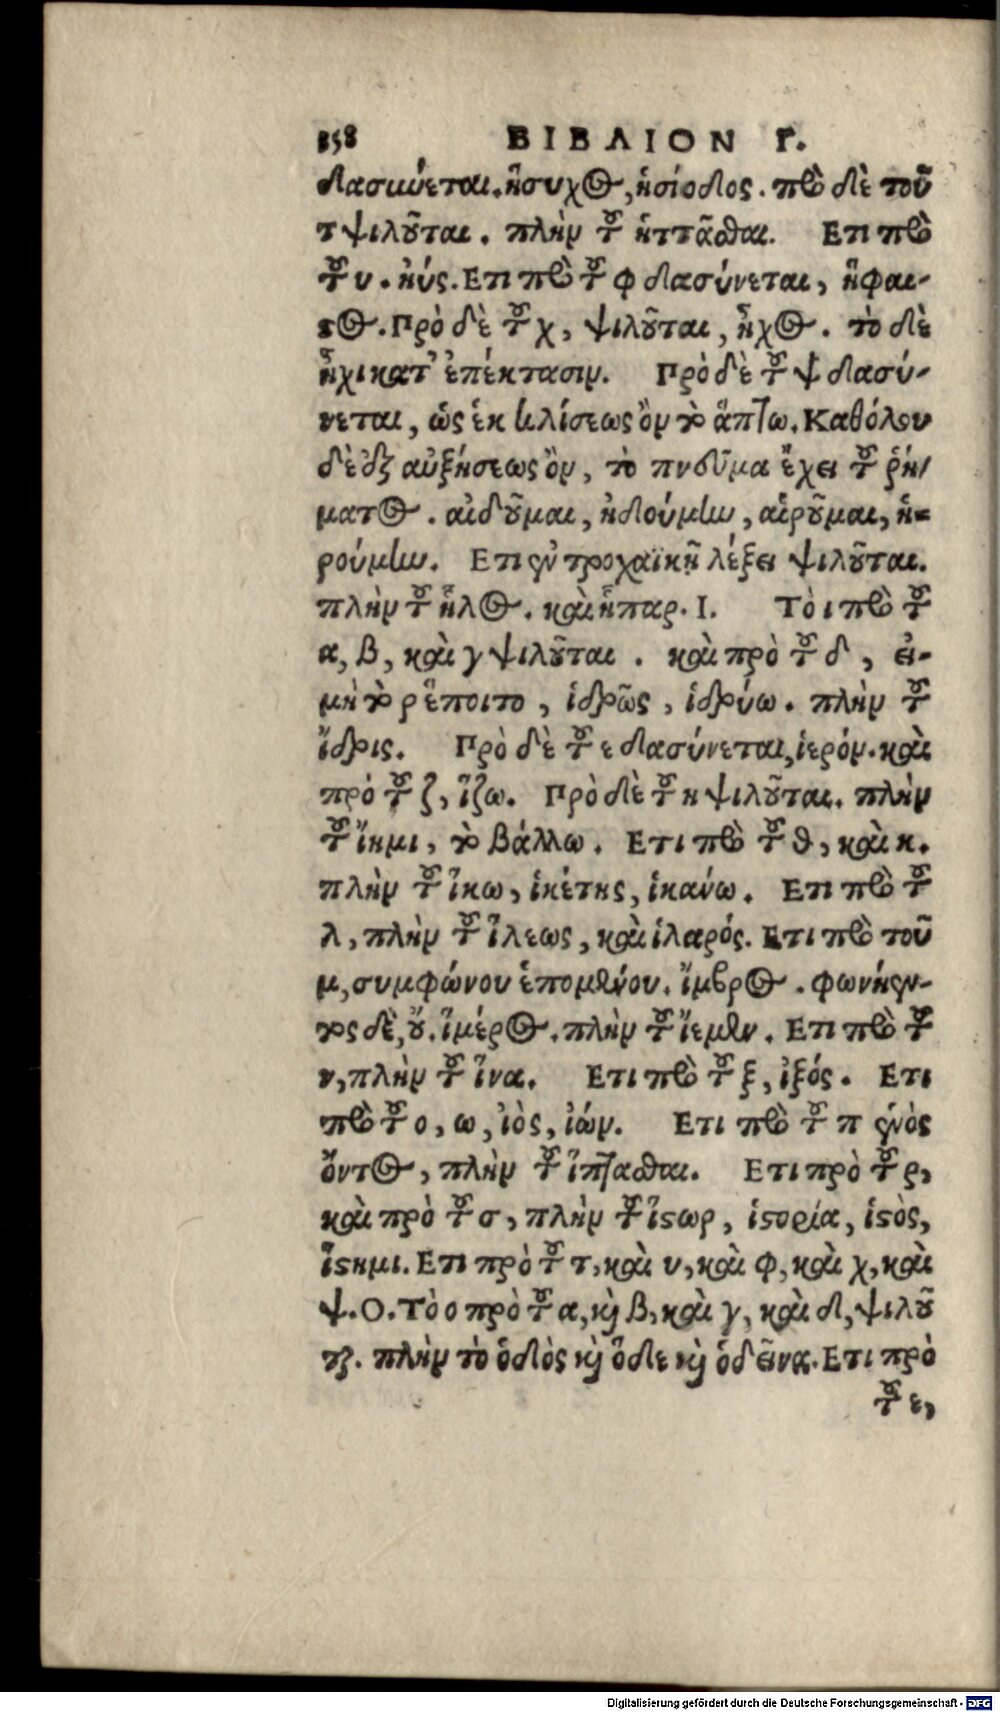 358 ΒΙΒΛΙΟΝ Γ.
δασύνεται. ἥσυχος, ἡσίοδος. πρὸ δὲ τοῦ
τ ψιλοῦται. πλὴν τοῦ ἡττᾶσθαι. Ετι πρὸ
τοῦ υ. ἠύς. Ετι πρὸ τοῦ φ δασύνεται, ἥφαι-
στος. Πρὸ δὲ τοῦ χ, ψιλοῦται, ἦχος. τὸ δὲ
ἧχι κατ' ἐπέκτασιν. Πρὸ δὲ τοῦ ψ δασύ-
νεται, ὡς ἐκ κλίσεως ὂν τοῦ ἅπτω. Καθόλου
δὲ ἐξ αὐξήσεως ὂν, τὸ πνεῦμα ἔχει τοῦ ῥή-
ματος. αἰδοῦμαι, ἠδούμην, αἱροῦμαι, ἡ-
ρούμην. Ετι ἐν τροχαϊκῇ λέξει ψιλοῦται.
πλὴν τοῦ ἧλος. καὶ ἧπαρ. Ι. Τὸ ι πρὸ τοῦ
α, β, καὶ γ ψιλοῦται. καὶ πρὸ τοῦ δ, εἰ-
μὴ τὸ ρ ἕποιτο, ἱδρῶς, ἱδρύω. πλὴν τοῦ
ἴδρις. Πρὸ δὲ τοῦ ε δασύνεται, ἱερόν. καὶ
πρὸ τοῦ ζ, ἵζω. Πρὸ δὲ τοῦ η ψιλοῦται. πλὴν
τοῦ ἵημι, τὸ βάλλω. Ετι πρὸ τοῦ θ, καὶ κ.
πλὴν τοῦ ἵκω, ἱκέτης, ἱκανύω. Ετι πρὸ τοῦ
λ, πλὴν τοῦ ἵλεως, καὶ ἱλαρός. Ετι πρὸ τοῦ
μ, συμφώνου ἑπομένου. ἴμβρος. φωνήεν-
τος δὲ, οὔ. ἵμερος. πλὴν τοῦ ἴεμεν. Ετι πρὸ τοῦ
ν, πλὴν τοῦ ἵνα. Ετι πρὸ τοῦ ξ, ἰξός. Ετι
πρὸ τοῦ ο, ω, ἰὸς, ἰών. Ετι πρὸ τοῦ π ἑνὸς
ὄντος, πλὴν τοῦ ἵπτασθαι. Ετι πρὸ τοῦ ρ,
καὶ πρὸ τοῦ σ, πλὴν τοῦ ἵστωρ, ἱστορία, ἱστὸς,
ἵστημι. Ετι πρὸ τοῦ τ, καὶ υ, καὶ φ, καὶ χ, καὶ
ψ. Ο. Τὸ ο πρὸ τοῦ α, καὶ β, καὶ γ, καὶ δ, ψιλοῦ
ται. πλὴν τὸ ὁδὸς καὶ ὅδε καὶ ὁδεῖνα. Ετι πρὸ
τοῦ ε,
Digitalisierung gefördert durch die Deutsche Forschungsgemeinschaft - DFG